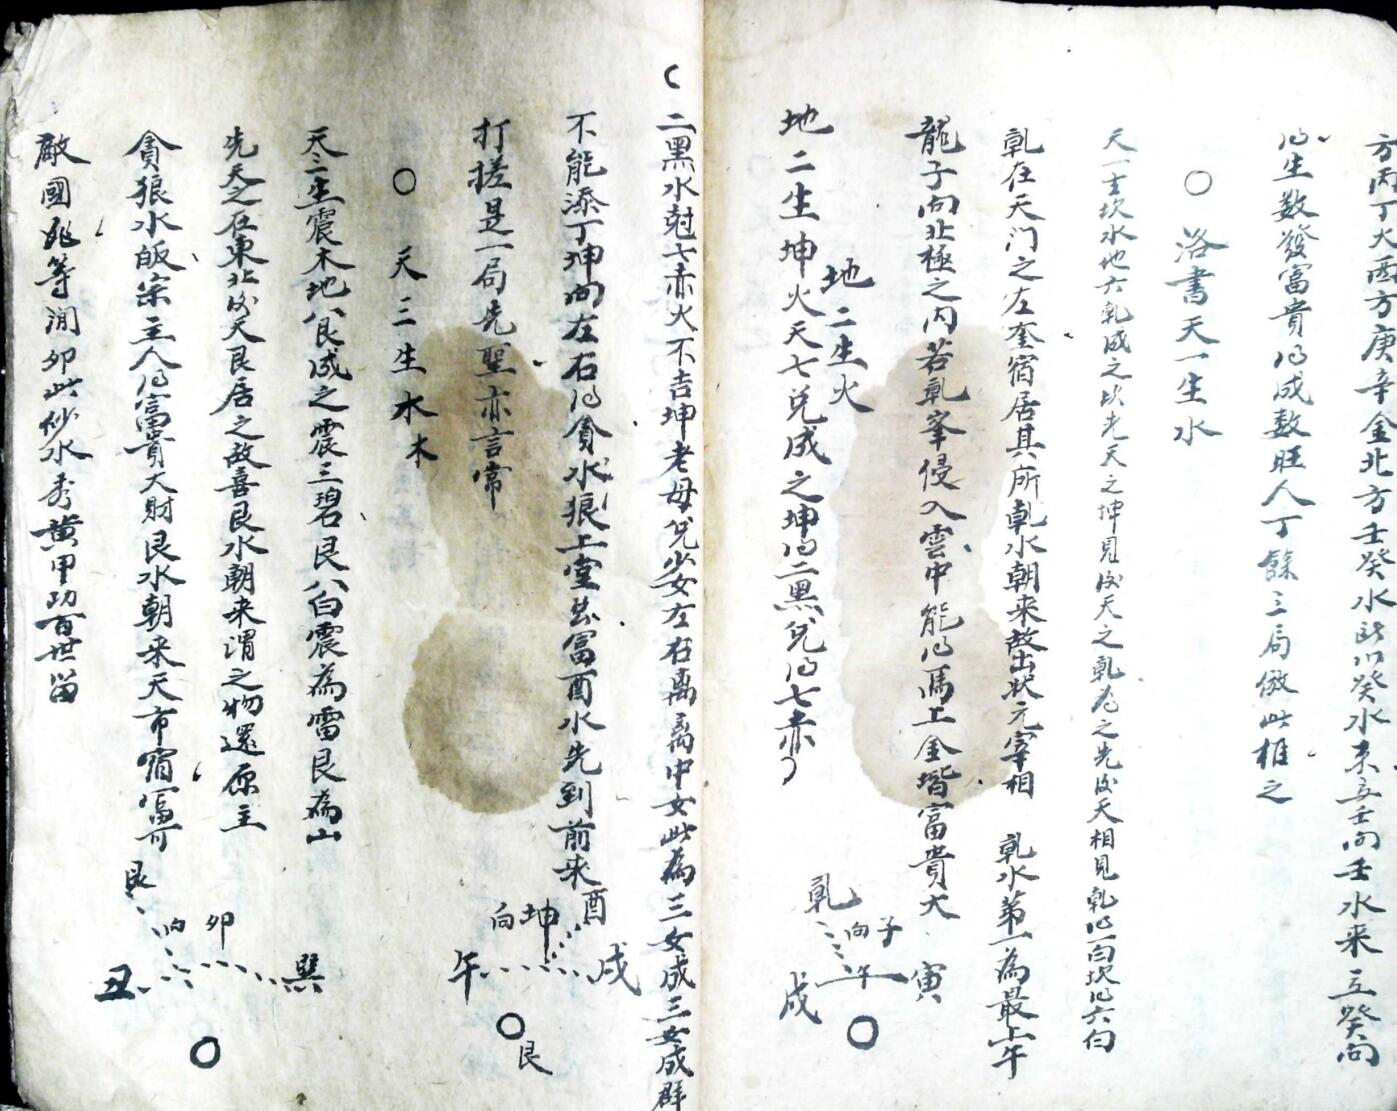 方丙丁火西方庚辛金北方壬癸水此以癸水来立壬向壬水来立癸向
得生数發富貴得成数旺人丁餘三局倣此推之
○ 洛書天一生水
天一生坎水地六乾成之坎先天之坤見後天之乾為之先後天相見乾得一白坎得六白
乾在天门之左奎宿居其所乾水朝来故出状元宰相 乾水第一為最上午
龍子向北極之内若乾峯侵入雲中能得馬上金堦富貴大
地二生火
地二生坤火天七兑成之坤得二黑兑得七赤
乾
子向
午
寅
戌
二黑水尅七赤火不吉坤老母兑少女左右离离中女此為三女成三女成群
不能添丁坤向左右得貪水狼上堂出富酉水先到前来
打搓是一局先聖亦言常
酉
坤向
午
戌
艮
○ 天三生水木
天三生震木地八艮成之震三碧艮八白震為雷艮為山
先天之在東北後天艮居之故喜艮水朝来谓之物還原主
貪狼水皈宗主人得富貴大財艮水朝来天市宿富可
敵國姚等润卯此砂水秀黄甲功百世留
艮
向
卯
丑
巽